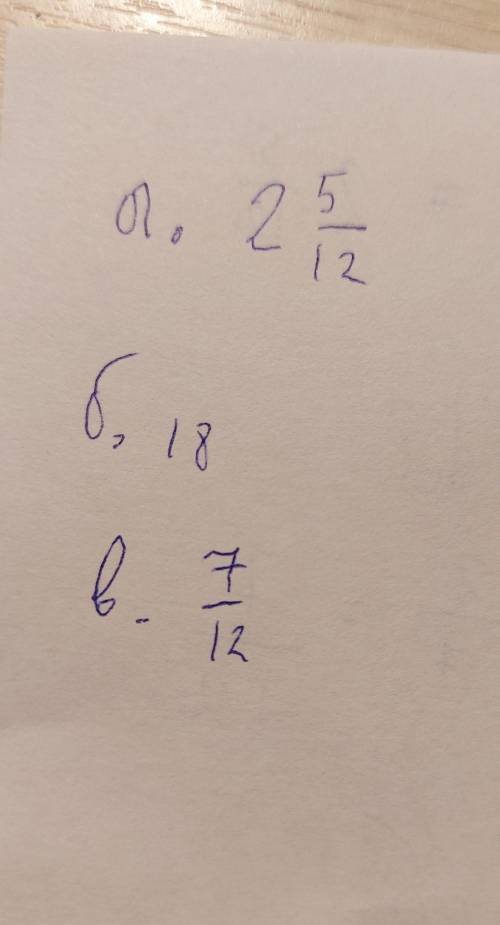 а. 2 5/12
б. 18
в. 7/12